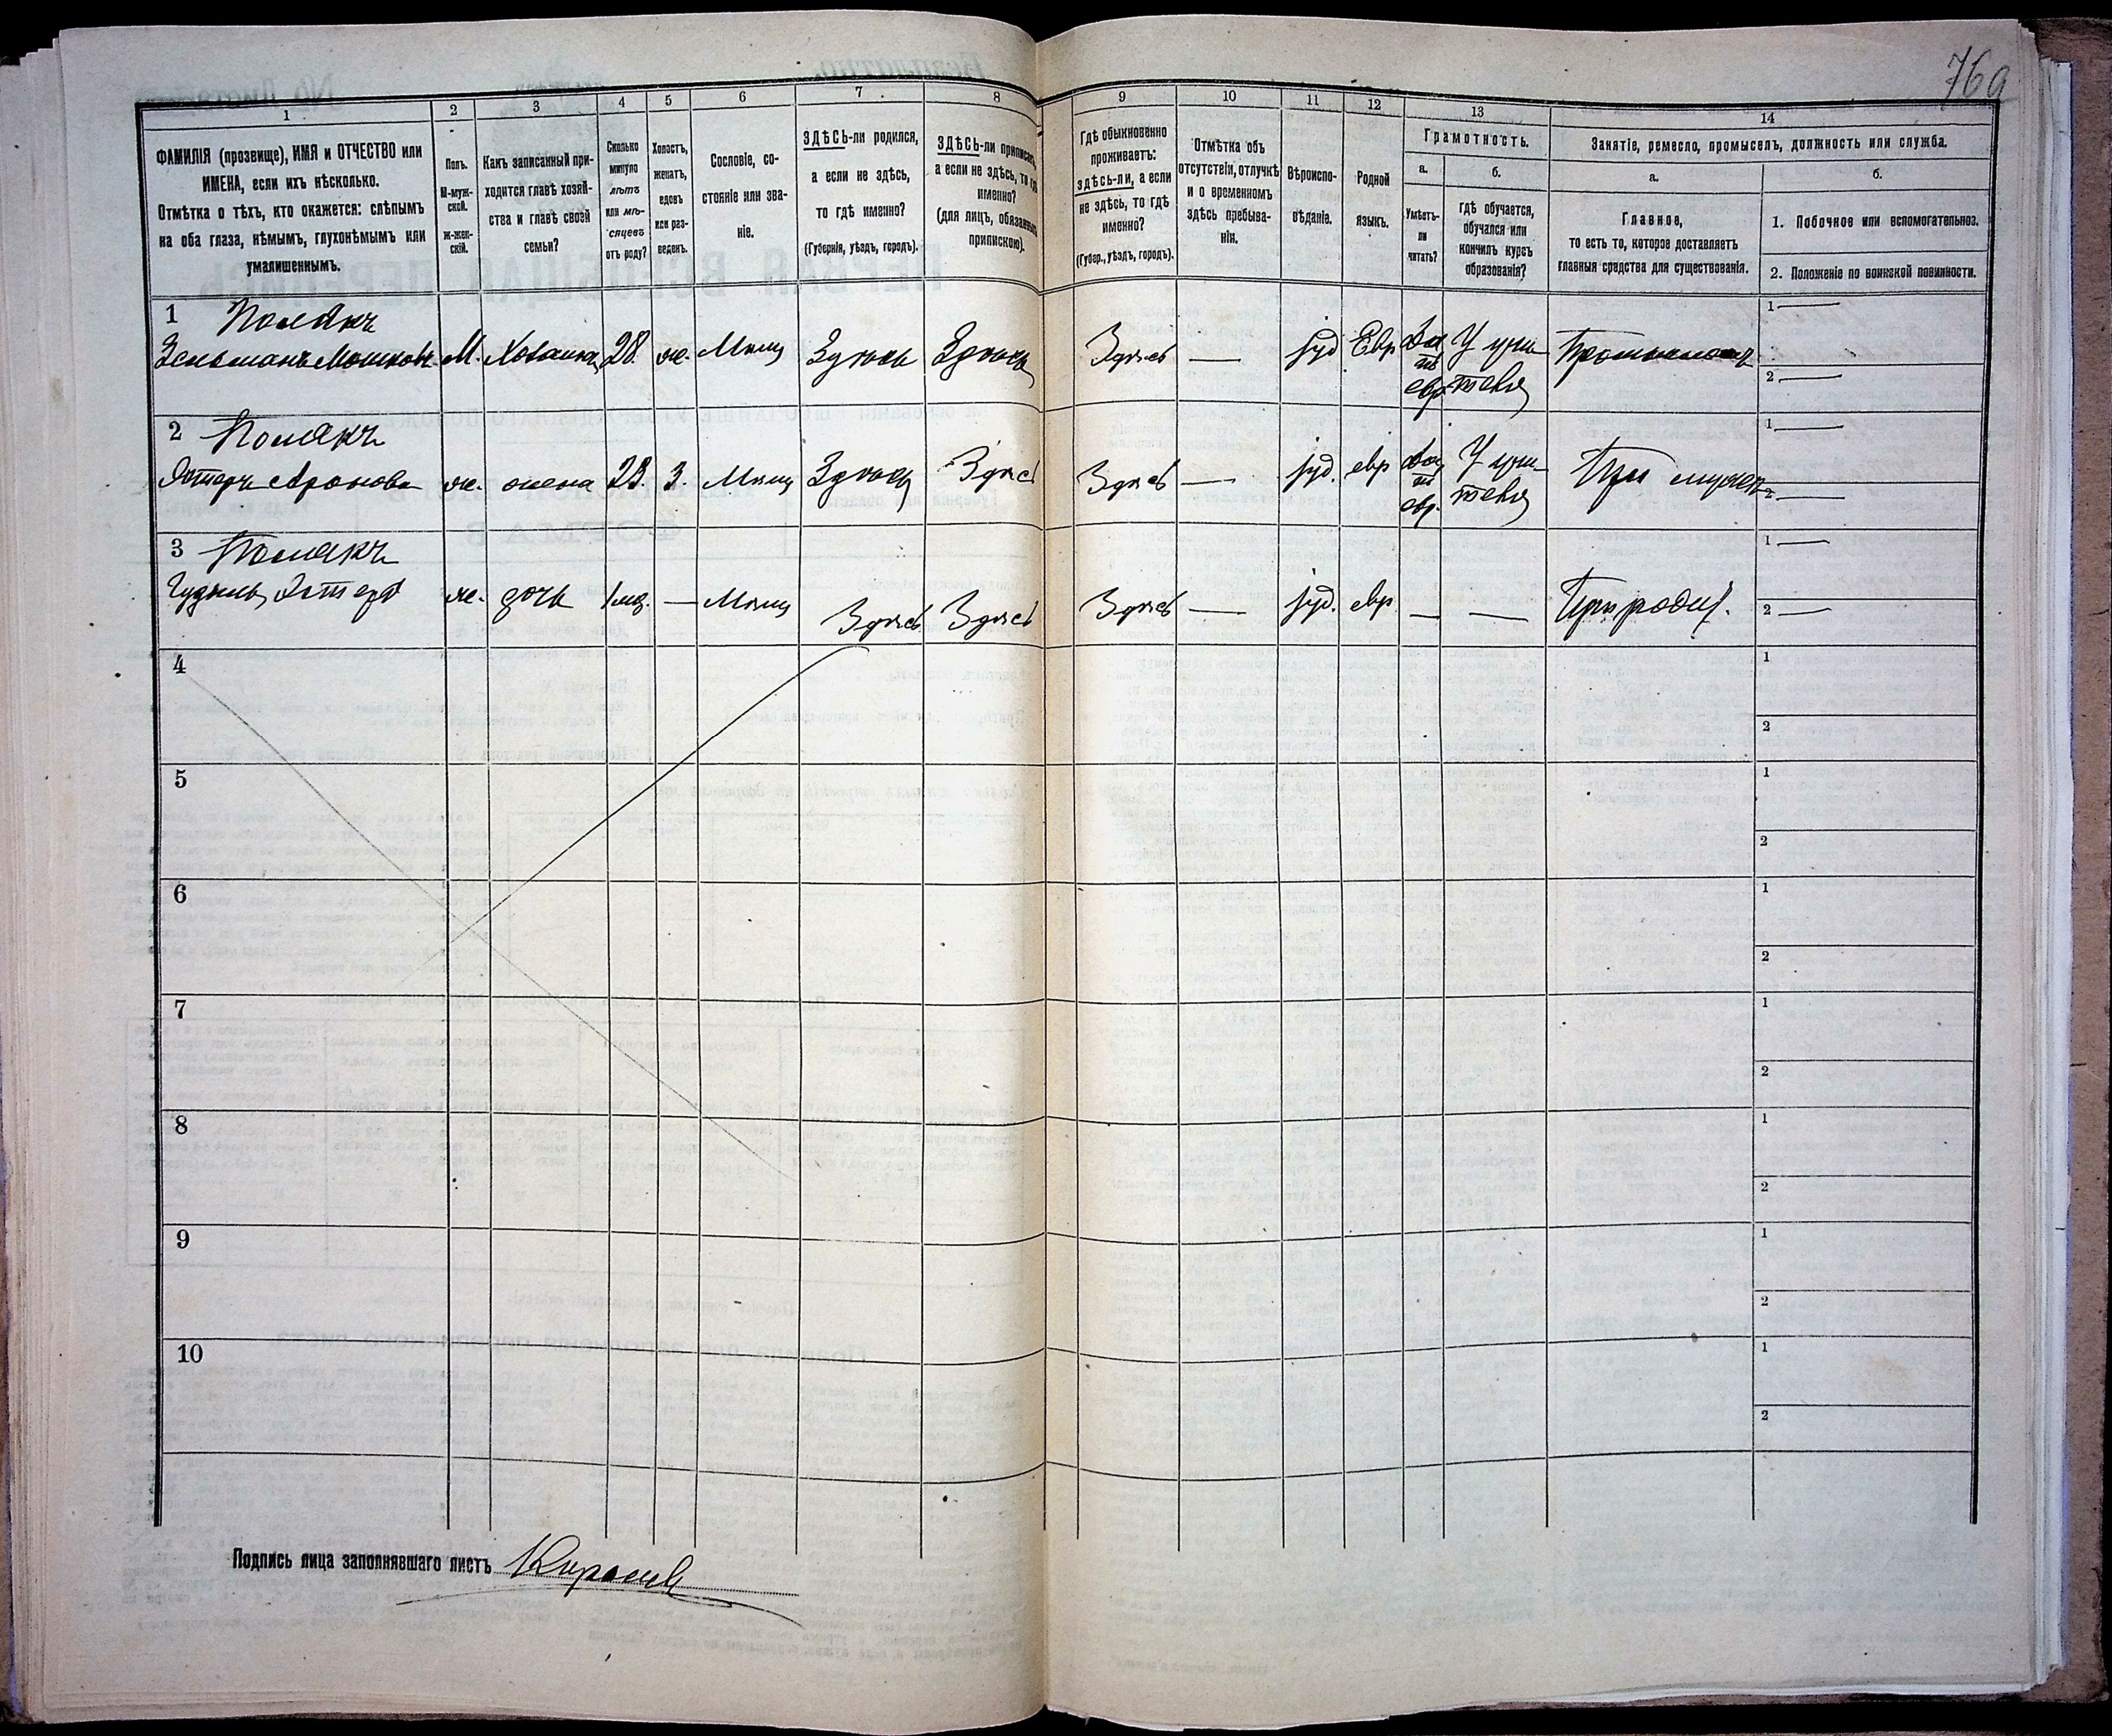 76а
1
2
3
4
5
6
7
8
9
10
11
12
13
14
ФАМИЛІЯ (прозвище), ИМЯ и ОТЧЕСТВО или
ИМЕНА, если ихъ нѣсколько.
Отмѣтка о тѣхъ, кто окажется: слѣпымъ
на оба глаза, нѣмымъ, глухонѣмымъ или
умалишеннымъ.
Полъ.
М-муж-
ской.
Ж-жен-
скій.
Какъ записанный при-
ходится главѣ хозяй-
ства и главѣ своей
семьи?
Сколько
минуло
лѣтъ
или мѣ-
сяцевъ
отъ роду?
Холостъ,
женатъ,
вдовъ
или раз-
веденъ.
Сословіе, со-
стояніе или зва-
ніе.
ЗДѢСЬ-ли родился,
а если не здѣсь,
то гдѣ именно?
(Губернія, уѣздъ, городъ).
ЗДѢСЬ-ли приписанъ,
а если не здѣсь, то гдѣ
именно?
(для лицъ, обязанныхъ
припискою).
Гдѣ обыкновенно
проживаетъ:
здѣсь-ли, а если
не здѣсь, то гдѣ
именно?
(Губер., уѣздъ, городъ).
Отмѣтка объ
отсутствіи, отлучкѣ
и о временномъ
здѣсь пребыва-
ніи.
Вѣроиспо-
вѣданіе.
Родной
языкъ.
Грамотность.
а.
Умѣетъ-
ли
читать?
б.
гдѣ обучается,
обучался или
кончилъ курсъ
образованія?
Занятіе, ремесло, промыселъ, должность или служба.
а.
Главное,
то есть то, которое доставляетъ
главныя средства для существованія.
б.
1. Побочное или вспомогательное.
2. Положеніе по воинской повинности.
1 Полякъ
Зельманъ Мошковъ М. Хозяинъ 28. ж. Мѣщ Здѣсь Здѣсь Здѣсь — іуд Евр Да по евр У учи-теля 1 — 2 —
2 Полякъ
Эстеръ Аронова ж. жена 23. З. Мѣщ Здѣсь Здѣсь Здѣсь — іуд. евр Да по евр. У учи-теля При мужѣ 1 — 2 —
3 Полякъ
ж. дочь 1 мѣ. — Мѣщ Здѣсь Здѣсь Здѣсь — іуд. евр — — При родит. 1 — 2 —
4 1 2
5 1 2
6 1 2
7 1 2
8 1 2
9 1 2
10 1 2
Подпись лица заполнявшаго листъ